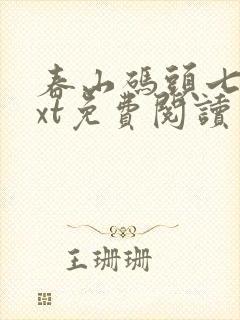 春山碼頭七
xt免費閱讀
王珊珊